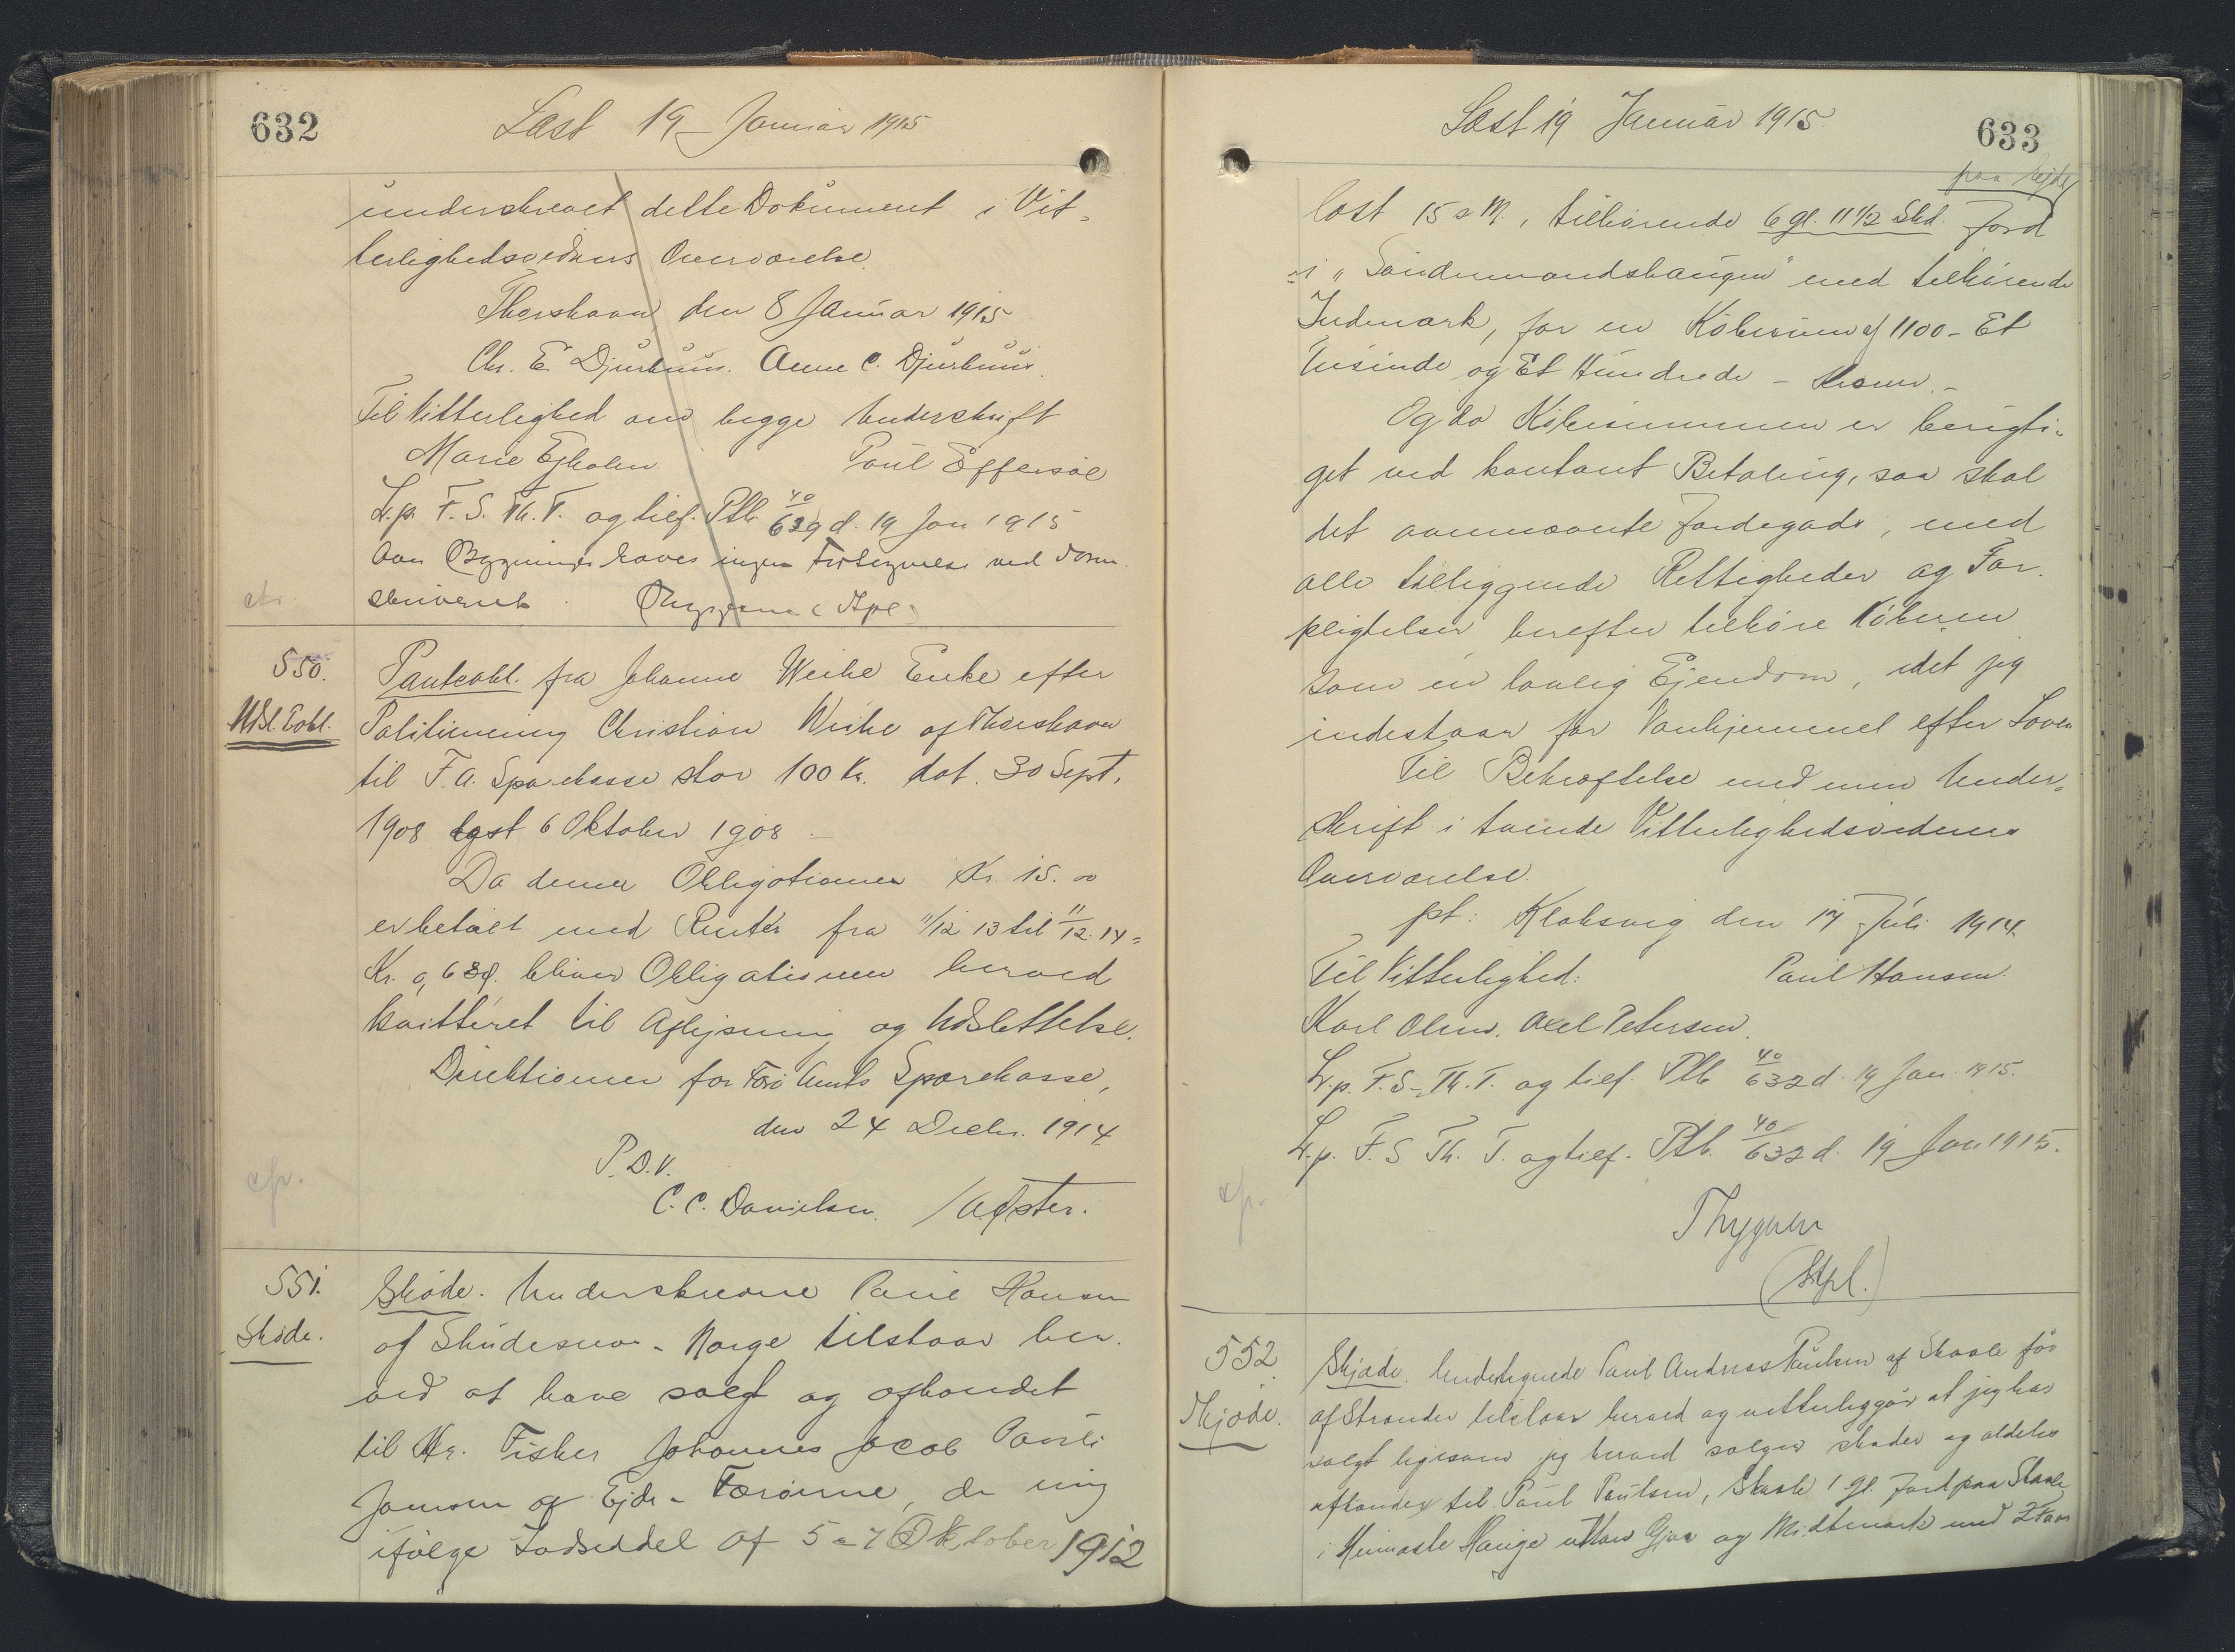 632
Læst 19 Januar 1915
underskrevet dette Dokument i Vit-
terlighedsvidners Overværelse.
Thorshavn den 8 Januar 1915
Chr. E. Djurhuus. Anne C. Djurhuus.
Til Vitterlighed om begge Underskrift
Marie Ejholm. Poul Effersøe
L.p. F. S. Th. T. og tilf. Ptb. 40/639 d. 19 Jan 1915
Om Bygninger haves ingen Fortegnelse ved Soren-
skriveriet. Thygesen (Stpl.
550.
Udsl. Pobl.
Panteobl. fra Johanne Weihe Enke efter
Politimening Christian Weihe af Thorshavn
til F. A. Sparekasse stor 100 Kr. dat. 30 Sept.
1908 lyst 6 Oktober 1908
Da denne Obligationen Kr. 15.00
er betalt med Renter fra 11/12 13 til 11/12 14 =
Kr. 0,63 Ø. bliver Obligationen herved
kvitteret til Aflysning og Udslettelse.
Direktionen for Færø Amts Sparekasse,
den 24 Decbr. 1914
P.D.V.
C. C. Danielsen.
551.
Skøde.
Skøde. Underskrevne Paul Hansen
af Skudesnes - Norge tilstaar her-
ved at have solgt og afhændet
til Hr. Fisker Johannes Jacob Pauli
Joensen af Ejde - Færøerne, de mig
ifølge Lodseddel af 5 - 7 Oktober 1912
633
Læst 19 Januar 1915.
paa Ejde
løst 15 s M., tilhørende 6 gl. 11 1/2 Skd. Jord
i "Søndermandshaugen" med tilhørende
Indmark, for en Købesum af 1100 - Et
Tusinde og Et Hundrede - Kroner. -
Og da Købesummen er berigti-
get ved kontant Betaling, saa skal
det ommeldte Jordegods, med
alle tilliggende Rettigheder og For-
pligtelser herefter tilhøre Køberen
som en lovlig Ejendom, idet jeg
indestaar for Vanhjemmel efter Loven
Til Bekræftelse med min Under-
skrift i tvende Vitterlighedsvidners
Overværelse.
pt: Klaksvig den 17 Juli 1914.
Til Vitterlighed: Paul Hansen.
Karl Olsen. Axel Petersen.
L.p. F. S. Th. T. og tilf. Ptb 40/632 d. 19 Jan 1915.
L.p. F. S Th. T. og tilf. Ptb. 40/632 d. 19 Jan 1915.
Thygesen
(Stpl.)
552
Skjøde.
Skjøde. Undertegnede Paul Andreas Paulsen af Skaale før
af Strender tilstaar herved og vitterliggør at jeg har
solgt ligesom jeg herved sælger skøder og aldeles
afhænder til Paul Paulsen, Skaale 1 gl. Jord paa Skaale
i Heimaste Hauge uttan Gjaa og Midtmark med